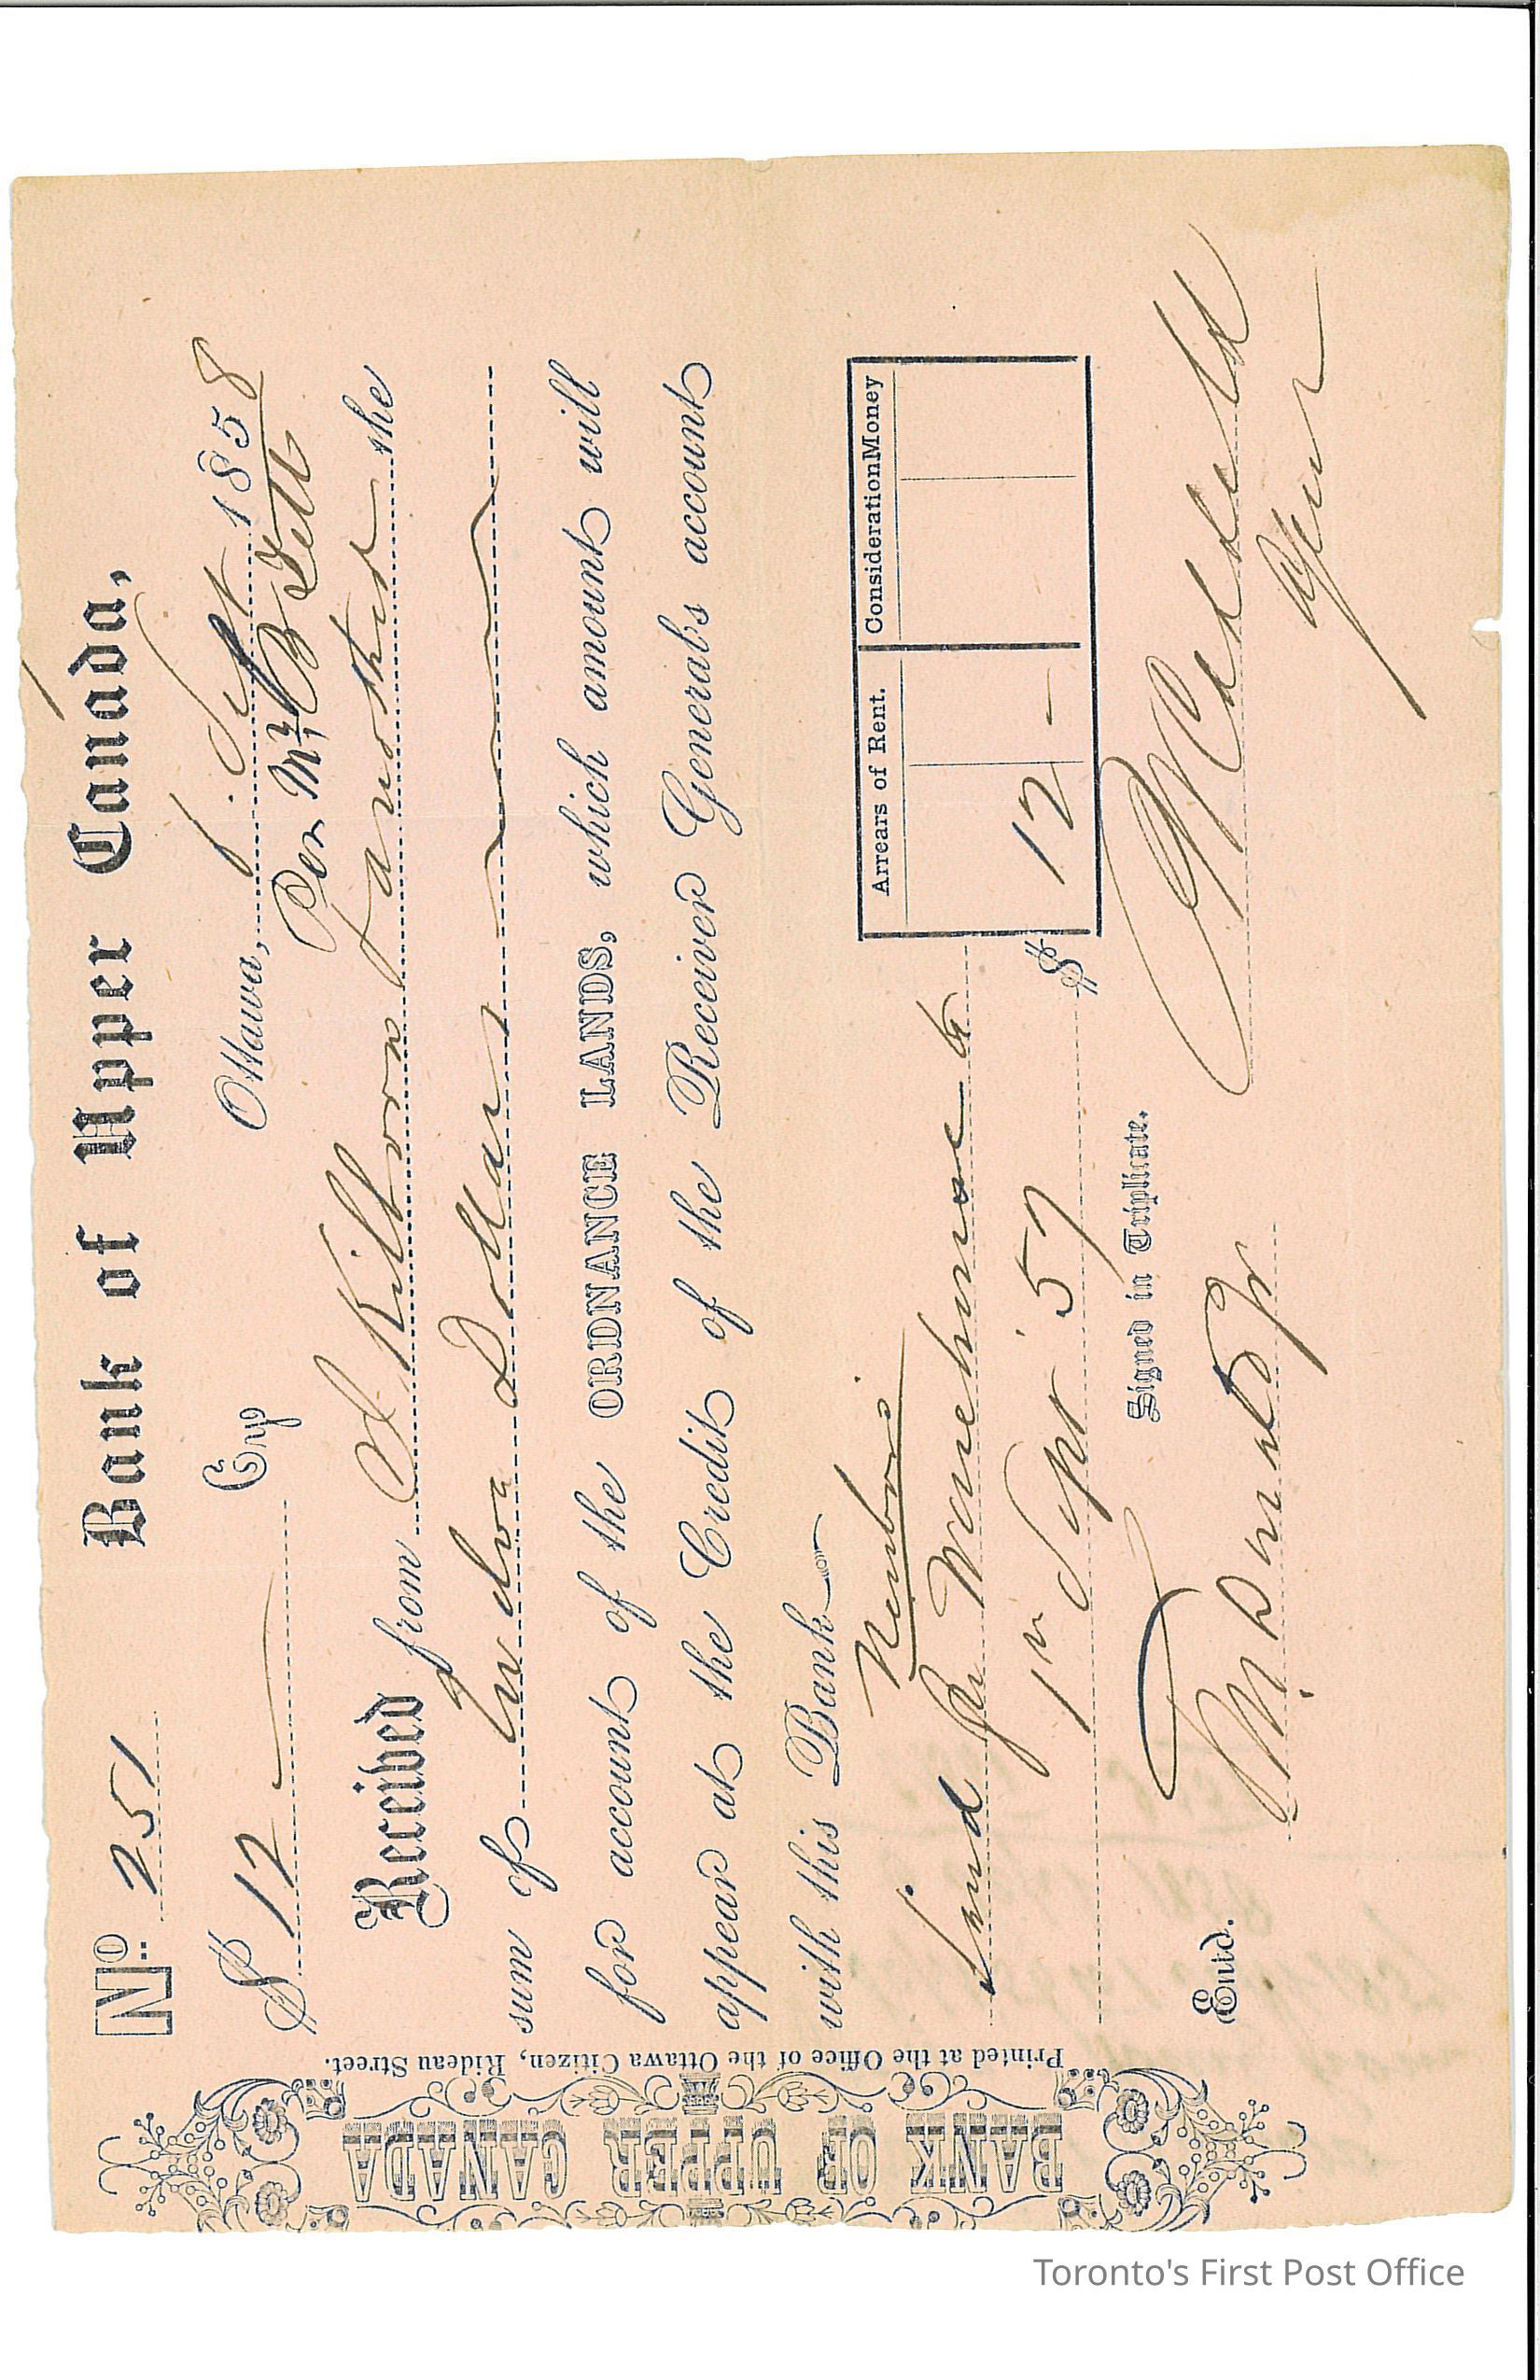 Bank of Upper Canada,
No. 251
Ottawa, 1 Sept 1858
$ 12 — Cry
Per Mr C B Tett
Received from S Kilborn Junr
the
sum of Twelve Dollars
for account of the ORDNANCE LANDS, which amount will
appear at the Credit of the Receiver General's account
with this Bank
Newboro
Arrears of Rent. Consideration Money
12 —
$
1st Sept '57
Signed in Triplicate.
Entd.
Agent
Printed at the Office of the Ottawa Citizen, Rideau Street.
BANK OF UPPER CANADA
Toronto's First Post Office